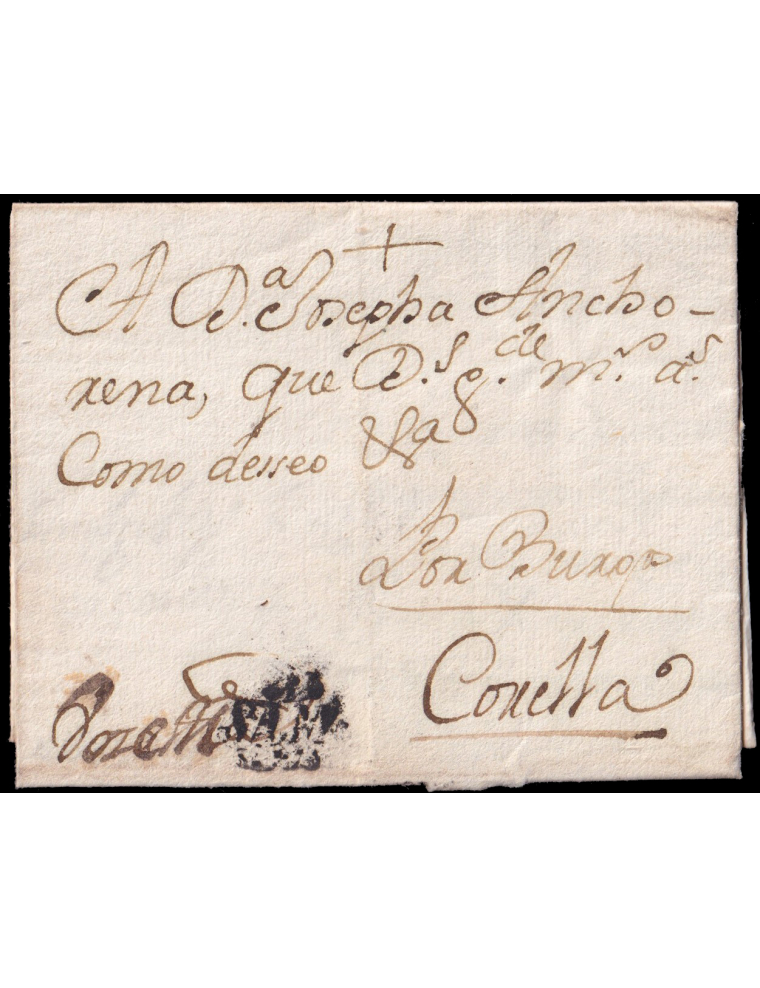 A D.ª Josepha Ancho-
rena, que D.s g.de m.s a.s
Como desseo &a
Por Burgos
Corella